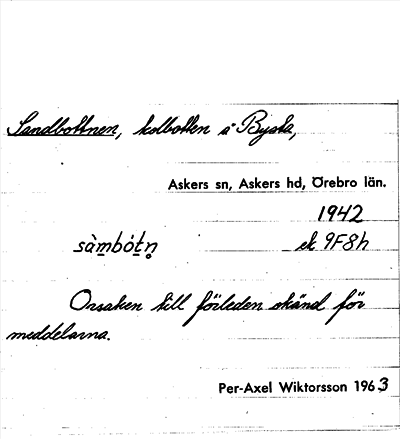 Sandbottnen, kolbotten å Bysta,
Askers sn, Askers hd, Örebro län.
1942
sàm̲bót̲n̥ ek 9F8h
Orsaken till förleden okänd för
meddelarna.
Per-Axel Wiktorsson 1963